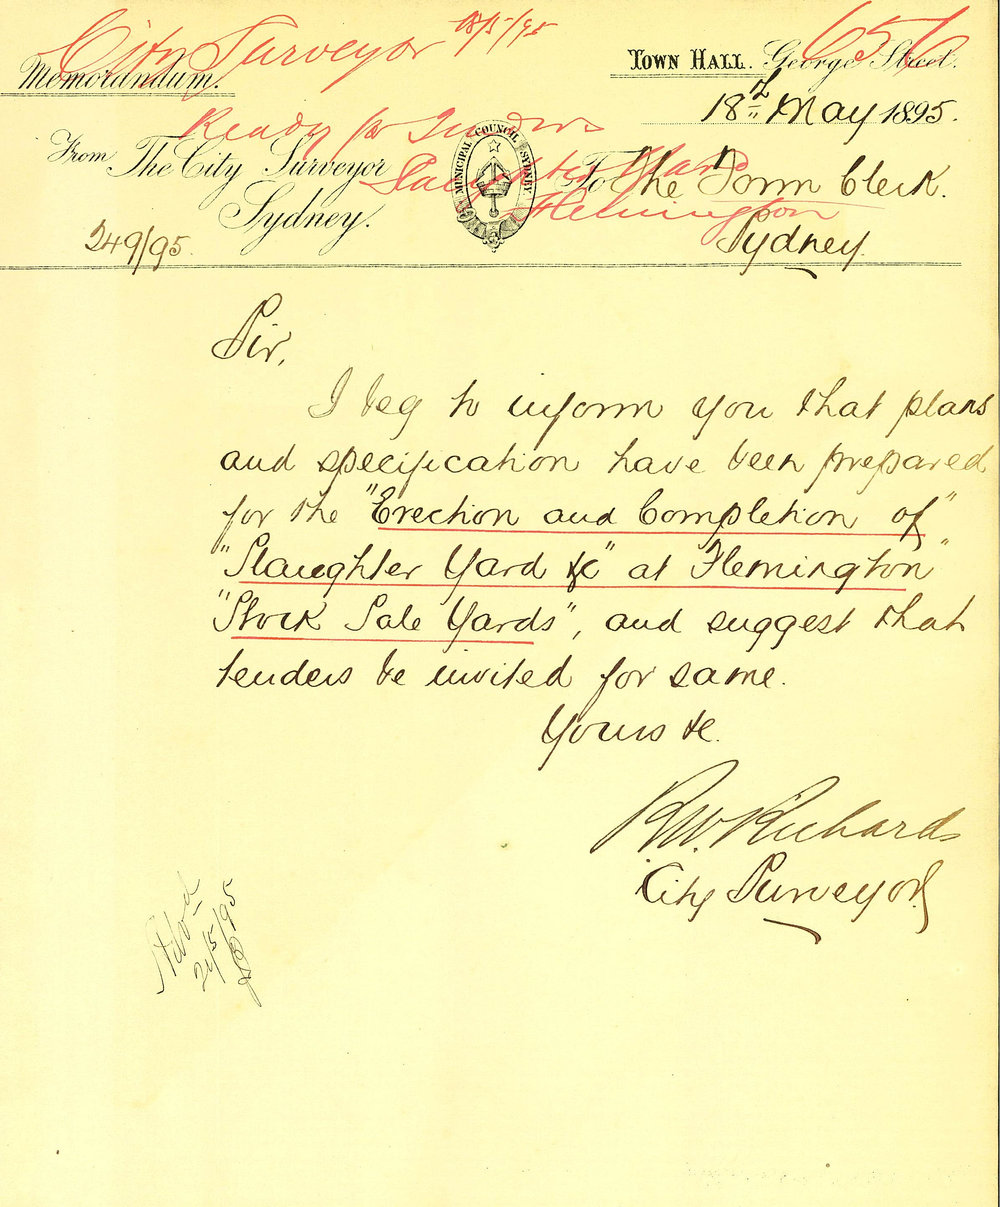 City Surveyor 18/5/95
656
Memorandum.
TOWN HALL. George Street.
18th May 1895.
Ready for Tenders
From The City Surveyor
Sydney.
MUNICIPAL COUNCIL SYDNEY
To The Town Clerk.
Sydney
Slaughter Yard
Flemington
249/95
Sir,
I beg to inform you that plans
and specification have been prepared
for the "Erection and Completion of"
"Slaughter Yard &c" at Flemington"
"Stock Sale Yards", and suggest that
tenders be invited for same.
Yours &c.
R.W. Richards
City Surveyor
21/5/95